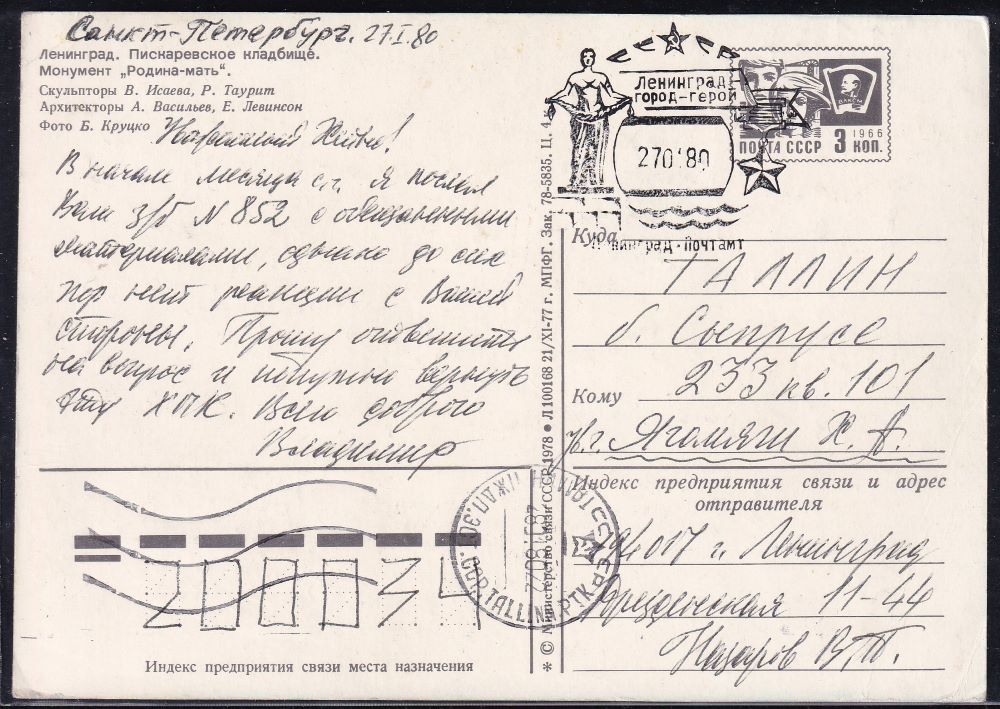 Санкт-Петербург. 27 I 80
Ленинград. Пискаревское кладбище.
Монумент „Родина-мать“.
Скульпторы В. Исаева, Р. Таурит
Архитекторы А. Васильев, Е. Левинсон
Фото Б. Круцко
В начале месяца с.г. я послал
Вам з/б N 852 с обещанными
материалами, однако до сих
пор нет реакции с Вашей
стороны. Прошу ответить
на вопрос и попутно вернуть
эту ХПК. Всего доброго
Владимир
Ленинград
город-герой
270180
Ленинград-почтамт
1966
ВЛКСМ
ПОЧТА СССР 3 КОП.
Куда
ТАЛЛИН
б. Сыпрусе
233 кв. 101
Кому
Ягомяги Х. А.
Индекс предприятия связи и адрес
отправителя
194017 г. Ленинград
Дрезденская 11-44
Назаров В.Т.
* © Министерство связи СССР, 1978 ● Л 100168 21/XI-77 г. МПФГ. Зак. 78-5835. Ц. 4 к.
TALLINN
200034
Индекс предприятия связи места назначения